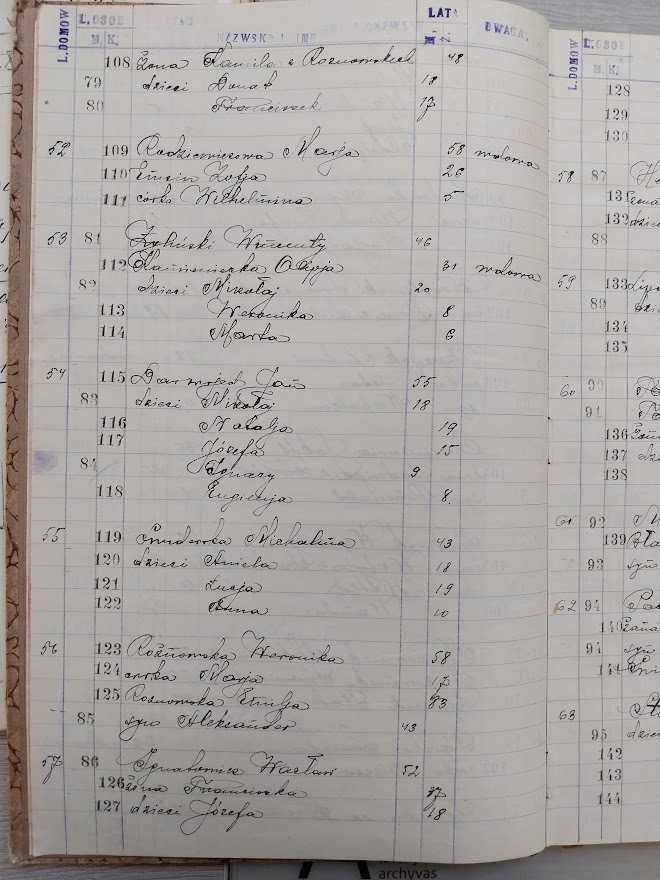 L. DOMÓW L. OSOB M. K. NAZWSKO I IME LATA M. Ż. UWAGA
108 żona Kamila z Roznowskich 48
79 dzieci Donat 18
80 Franciszek 17
52 109 Rodziewiczowa Marja 58 wdowa
110 Zofja 26
111 córka Wilhelmina 5
53 81 Wincenty 46
112 31 wdowa
82 dzieci Mikołaj 20
113 Weronika 8
114 Marta 6
54 115 Jan 55
83 dzieci Mikołaj 18
116 Natalja 19
117 Józefa 15
84 Ignacy 9
118 Eugienja 8.
55 119 Michalina 43
120 dzieci Aniela 18
121 Łucja 19
122 Anna 10
56 123 Rożnowska Weronika 58
124 córka Marja 17
125 Roznowska Emilja 83
85 syn Aleksander 43
57 86 Ignatowicz Wacław 52
126 żona Franciszka
127 dzieci Józefa 18
L. DOMÓW L. OSOB M. K.
128
129
130
58 87
131 żona
132 dzieci
88
59 133
89
134
135
60 90
91
136 żona
137
138
61 92
139
93 syn
62 94
140 żona
94 syn
144
63
95 dzieci
142
143
144
archyvas